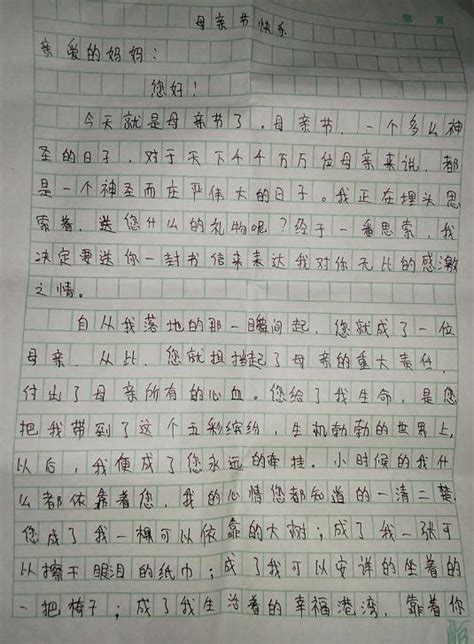 第 页
母亲节快乐
亲爱的妈妈：
您好！
今天就是母亲节了，母亲节，一个多么神
圣的日子，对于天下千千万万位母亲来说，都
是一个神圣而庄严伟大的日子。我正在埋头思
索着，送您什么的礼物呢？经于一番思索，我
决定要送你一封书信来表达我对你无比的感激
之情。
自从我落地的那一瞬间起，您就成了一位
母亲，从比，您就担挡起了母亲的重大责任，
付出了母亲所有的心血。您给了我生命，是您
把我带到了这个五彩缤纷，生机勃勃的世界上，
以后，我便成了您永远的牵挂。小时候的我什
么都依靠着您，我的心情您都知道的一清二楚，
您成了我一棵可以依靠的大树；成了我一张可
以擦干眼泪的纸巾；成了我可以安详的坐着的
一把椅子；成了我生活着的幸福港湾，靠着你